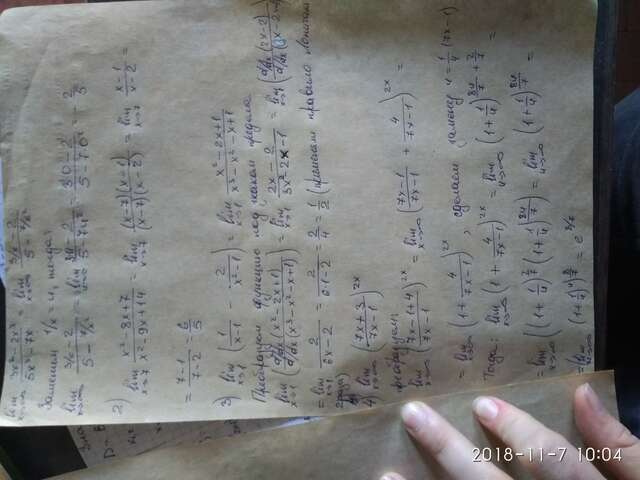 lim x→∞ 3x - 2x² / 5x² - 7x = lim x→∞ 3/x - 2 / 5 - 7/x
Заменим 1/x = u, тогда:
= lim 3u - 2 / 5 - 7u = 3·0 - 2 / 5 - 7·0 = - 2/5
2) lim x→7 x² - 8x + 7 / x² - 9x + 14 = lim x→7 (x - 7)(x - 1) / (x - 7)(x - 2) = lim x→7 x - 1 / x - 2 =
= 7 - 1 / 7 - 2 = 6/5
3) lim x→1 ( 1 / x - 1 - 2 / x² - 1 ) = lim x→1 x² - 2x + 1 / x³ - x² - x + 1
функцию под знаком предела
lim x→1 ( d/dx (x² - 2x + 1) / d/dx (x³ - x² - x + 1) ) = lim x→1 2x - 2 / 3x² - 2x - 1 = lim x→1 ( d/dx (2x - 2)
= lim x→1 2 / 6x - 2 = 2 / 6·1 - 2 = 2/4 = 1/2 (применяем правило Лопиталя
2 раза)
4) lim x→∞ ( 7x + 3 / 7x - 1 )^2x
lim x→∞ ( 7x - 1 + 4 / 7x - 1 )^2x = lim x→∞ ( 7x - 1 / 7x - 1 + 4 / 7x - 1 )^2x =
= lim x→∞ ( 1 + 4 / 7x - 1 )^2x, сделаем замену u = 1/4 (7x - 1)
Тогда: lim x→∞ ( 1 + 4 / 7x - 1 )^2x = lim u→∞ ( 1 + 1/u )^8u/7 + 2/7 =
= lim u→∞ ( ( 1 + 1/u )^2/7 ( 1 + 1/u )^8u/7 ) = lim u→∞ ( 1 + 1/u )^8u/7 =
= ( lim u→∞ ( 1 + 1/u )^u )^8/7 = e^8/7
2018-11-7 10:04